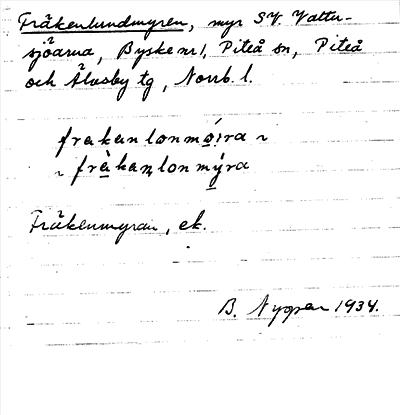 Fräkenlundmyren, myr SV. Vattu-
sjöarna, Byske nr 1, Piteå sn, Piteå
och Älvsby tg, Norrb. l.
frakanlonmo̱íra ~
~ frà̱kaṉlonmý̱ra
Fräkenmyran, ek.
B. Nygren 1934.